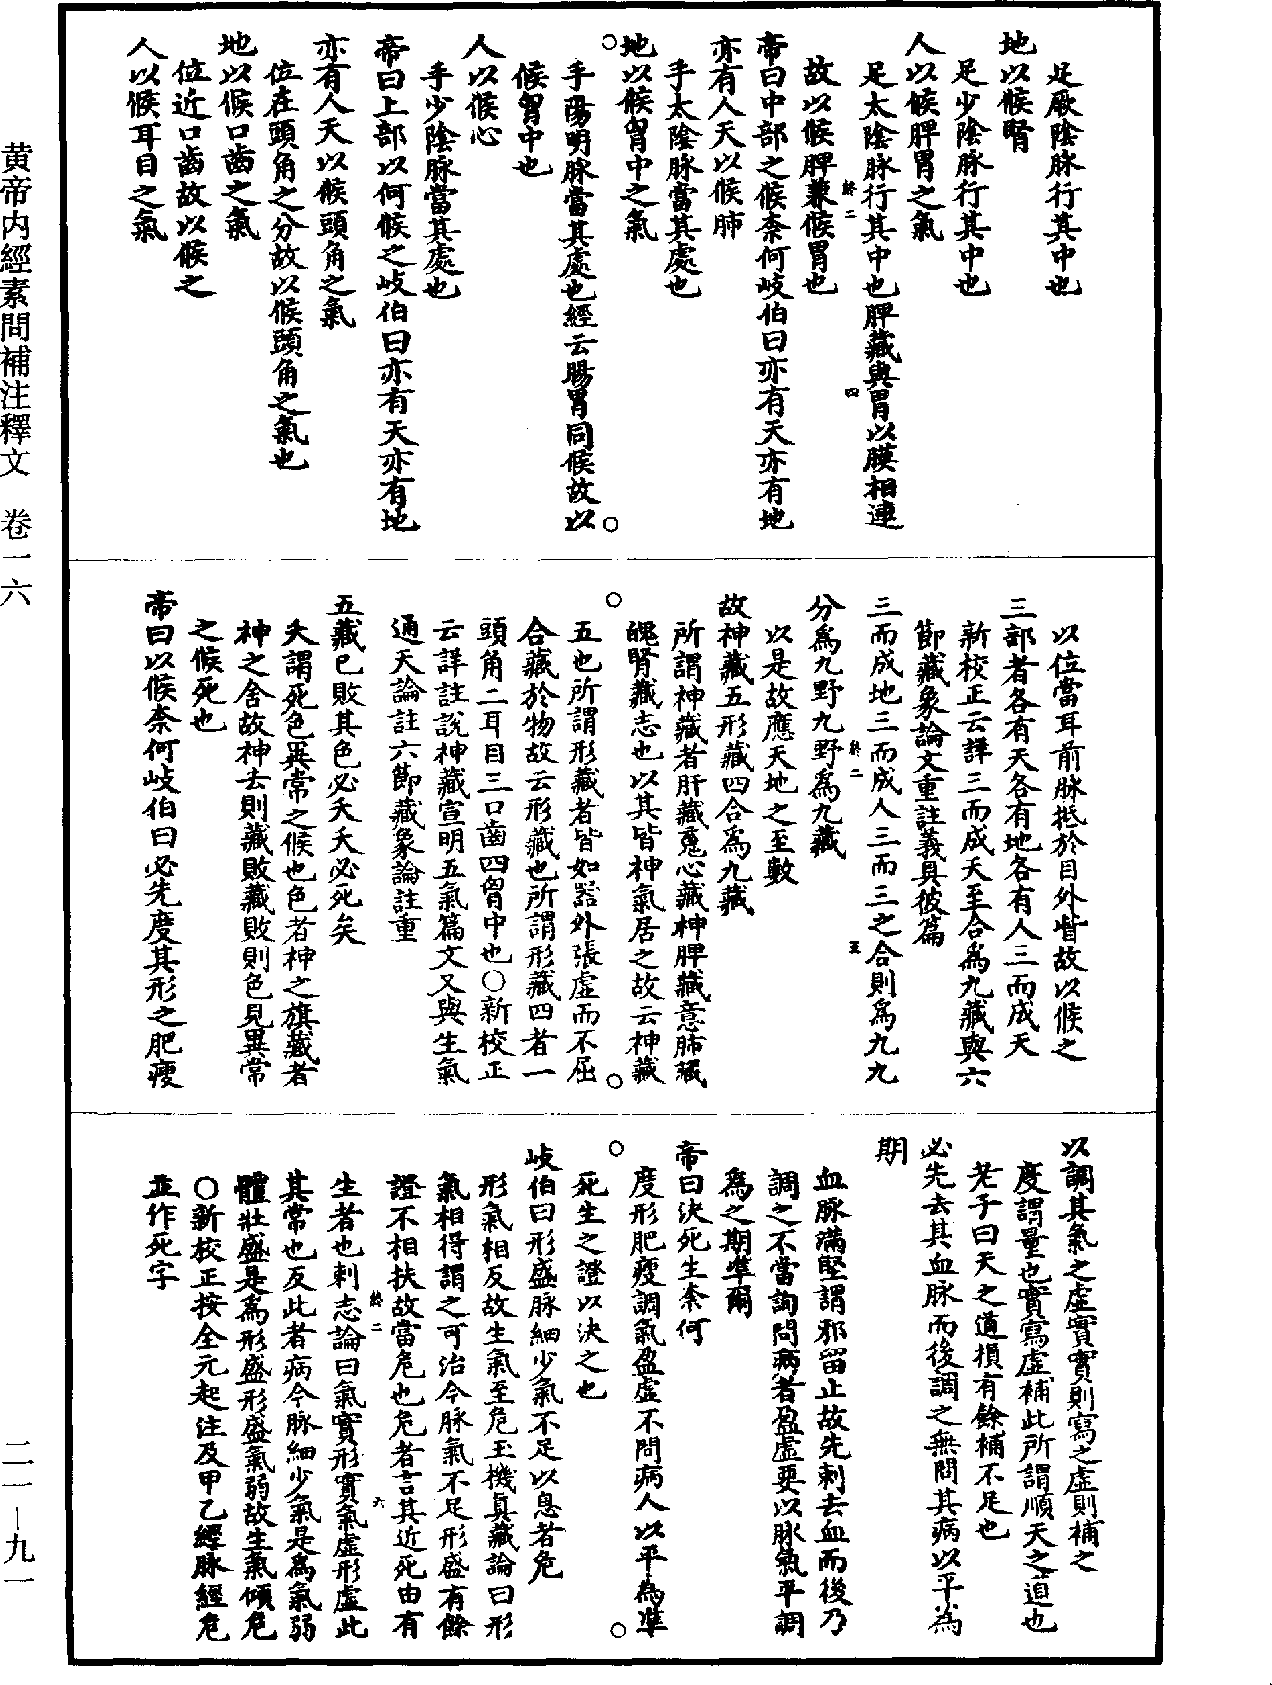 足厥陰脉行其中也
地以候腎
足少陰脉行其中也
人以候脾胃之氣
足太陰脉行其中也脾藏與胃以膜相連
故以候脾兼候胃也
帝曰中部之候柰何岐伯曰亦有天亦有地
亦有人天以候肺
手太陰脉當其處也
地以候胷中之氣
手陽明脉當其處也經云腸胃同候故以
候胷中也
人以候心
手少陰脉當其處也
帝曰上部以何候之岐伯曰亦有天亦有地
亦有人天以候頭角之氣
位在頭角之分故以候頭角之氣也
地以候口齒之氣
位近口齒故以候之
人以候耳目之氣
以位當耳前脉抵於目外眥故以候之
三部者各有天各有地各有人三而成天
新校正云詳三而成天至合爲九藏與六
節藏象論文重註義具彼篇
三而成地三而成人三而三之合則爲九九
分爲九野九野爲九藏
以是故應天地之至數
故神藏五形藏四合爲九藏
所謂神藏者肝藏䰟心藏神脾藏意肺藏
魄腎藏志也以其皆神氣居之故云神藏
五也所謂形藏者皆如器外張虛而不屈
合藏於物故云形藏也所謂形藏四者一
頭角二耳目三口齒四胷中也○新校正
云詳註說神藏宣明五氣篇文又與生氣
通天論註六節藏象論註重
五藏已敗其色必夭夭必死矣
夭謂死色異常之候也色者神之旗藏者
神之舍故神去則藏敗藏敗則色見異常
之候死也
帝曰以候柰何岐伯曰必先度其形之肥瘦
以調其氣之虛實實則寫之虛則補之
度謂量也實寫虛補此所謂順天之道也
老子曰天之道損有餘補不足也
必先去其血脉而後調之無問其病以平為
期
血脉滿堅謂邪留止故先刺去血而後乃
調之不當詢問病者盈虛要以脉氣平調
爲之期準爾
帝曰決死生柰何
度形肥瘦調氣盈虛不問病人以平為準
死生之證以決之也
岐伯曰形盛脉細少氣不足以息者危
形氣相反故生氣至危玉機眞藏論曰形
氣相得謂之可治今脉氣不足形盛有餘
證不相扶故當危也危者言其近死由有
生者也刺志論曰氣實形實氣虛形虛此
其常也反此者病今脉細少氣是爲氣弱
體壯盛是爲形盛形盛氣弱故生氣傾危
○新校正按全元起注及甲乙經脉經危
並作死字
黄帝内經素問補注釋文　卷一六
二一－九一